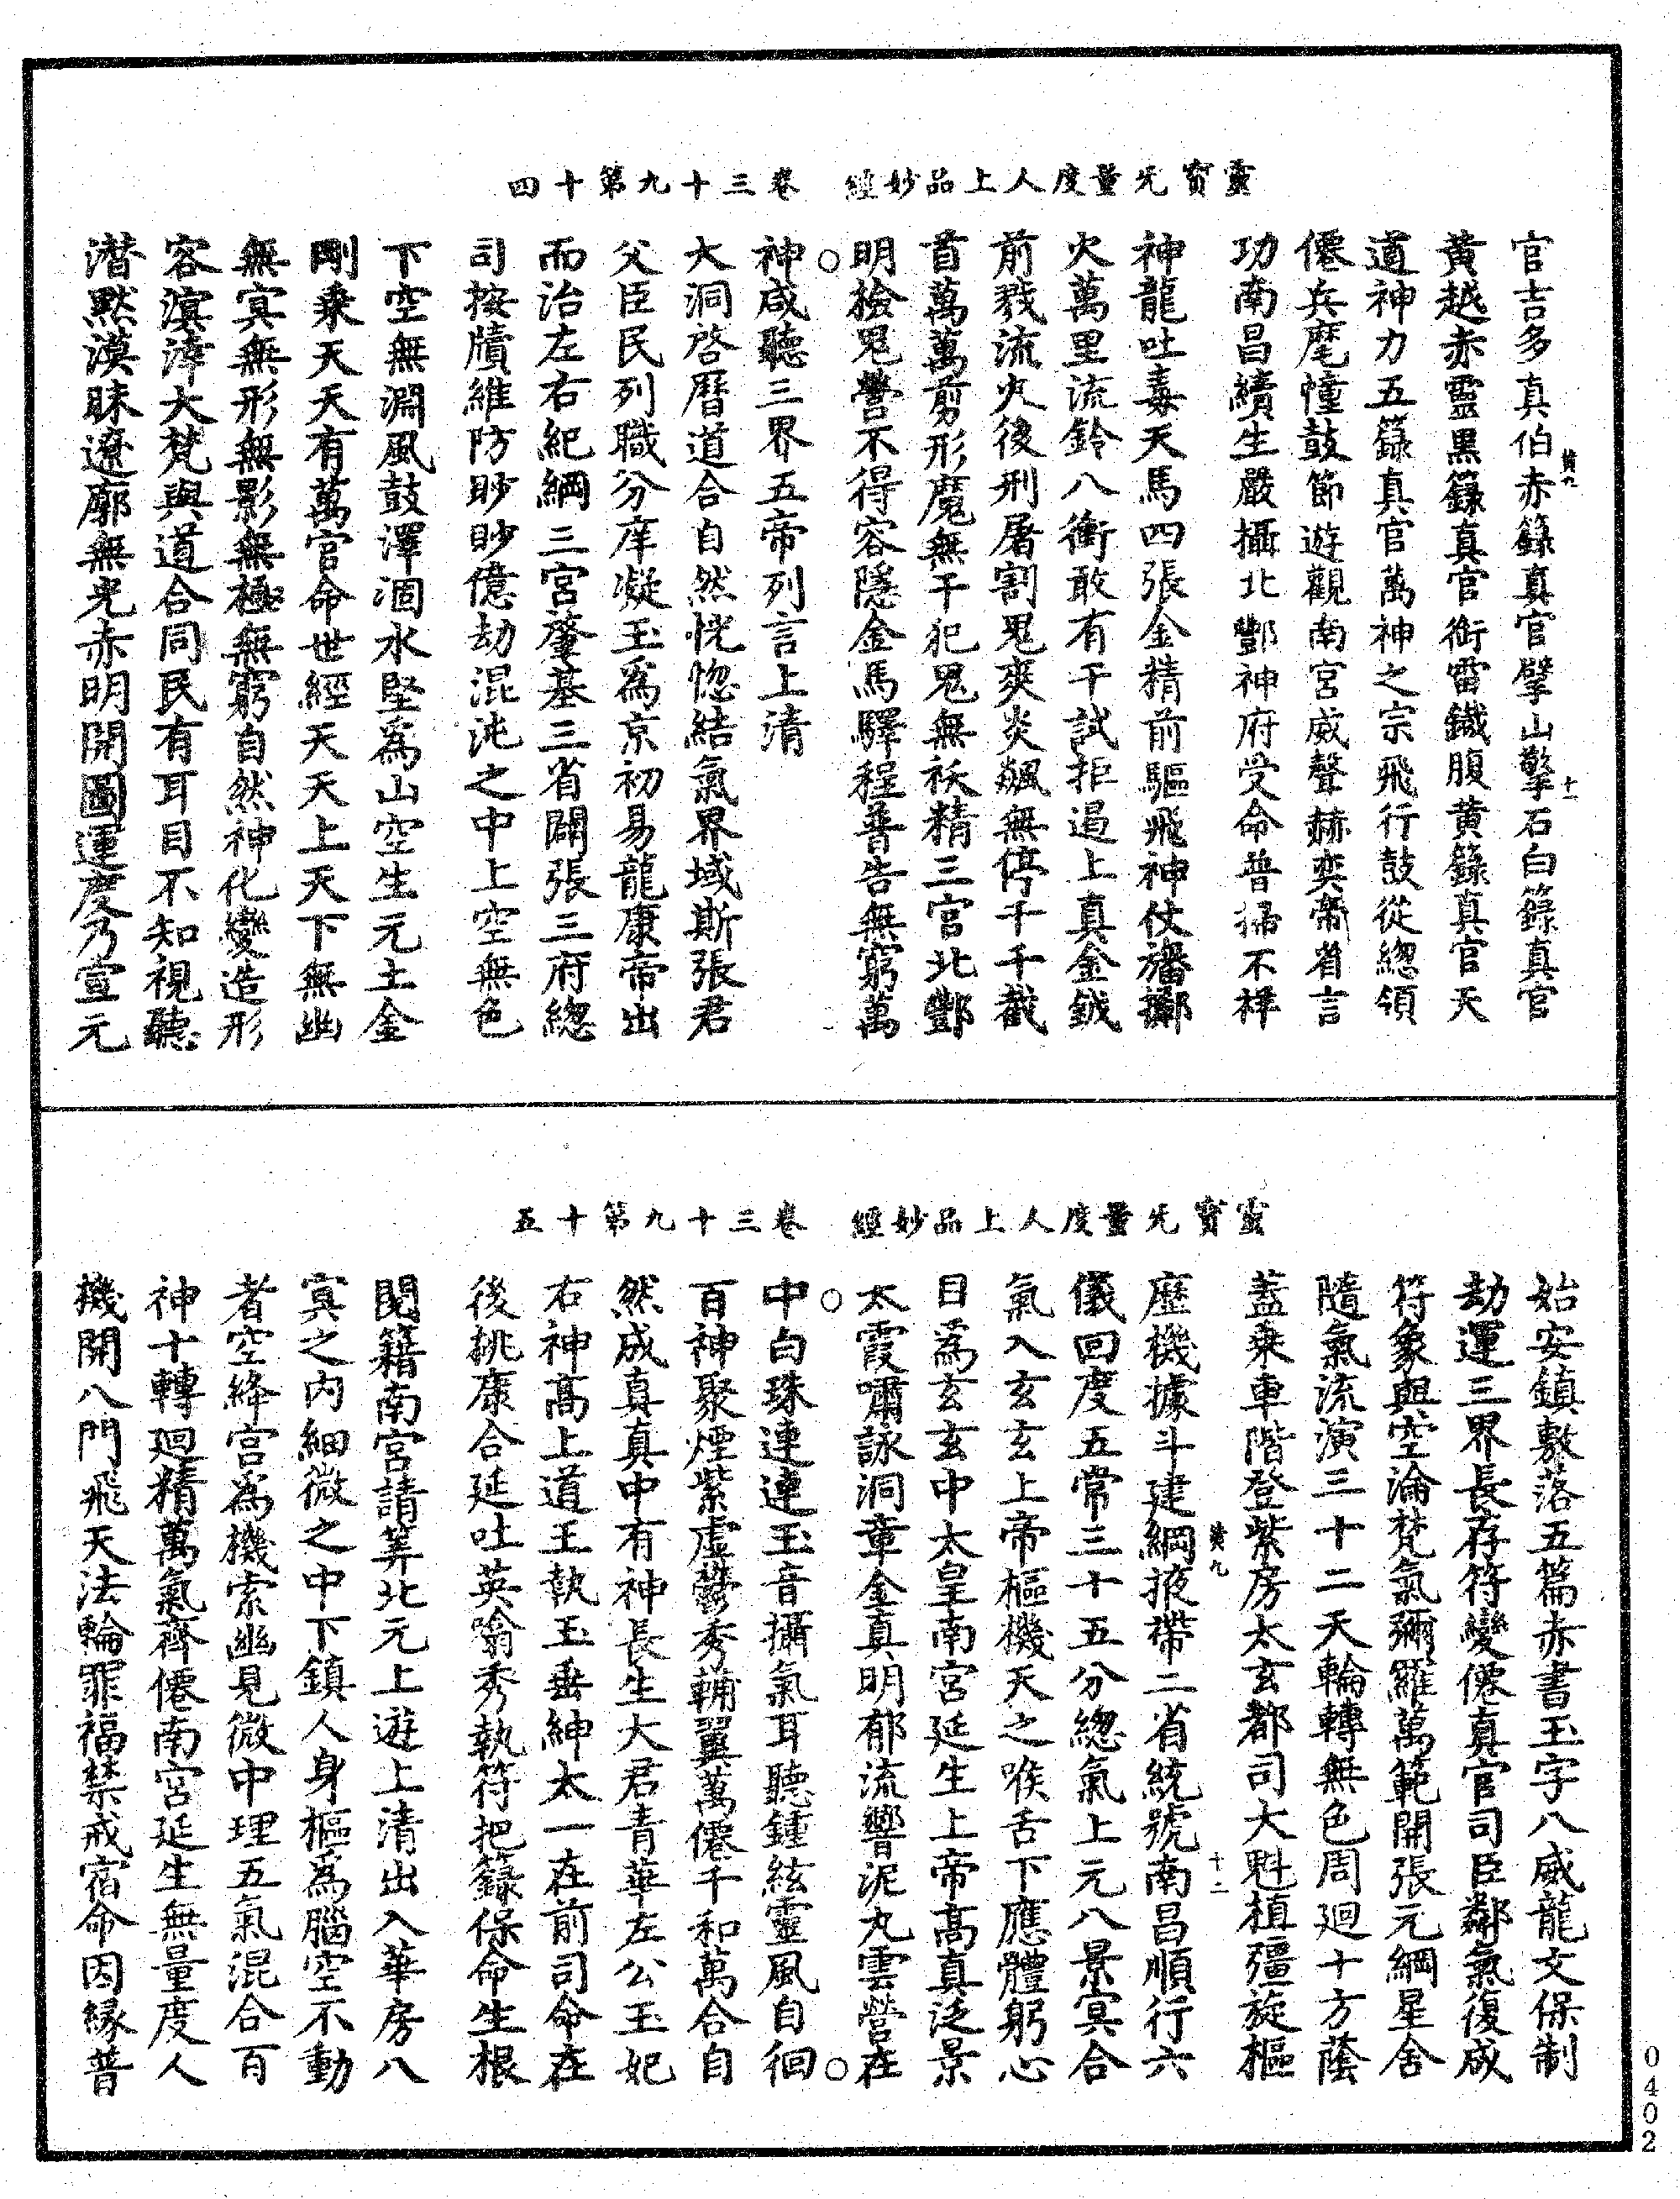 靈寶无量度人上品妙經　卷三十九第十四
官吉多真伯赤籙真官擘山擎石白籙真官
黃越赤靈黑籙真官銜雷鐵腹黃籙真官天
道神力五籙真官萬神之宗飛行鼓從總領
僊兵麾幢鼓節遊觀南宮威聲赫奕帝省言
功南昌績生嚴攝北酆神府受命普掃不祥
神龍吐毒天馬四張金精前驅飛神仗旛擲
火萬里流鈴八衝敢有干試拒遏上真金鉞
前戮流火後刑屠割鬼爽炎飆無停千千截
首萬萬剪形魔無干犯鬼無祅精三官北酆
明檢鬼營不得容隱金馬驛程普告無窮萬
神咸聽三界五帝列言上清
○
大洞啓曆道合自然恍惚結氣界域斯張君
父臣民列職分庠凝玉爲京初易龍康帝出
而治左右紀綱三宮肇基三省闢張三府緫
司按牘維防眇眇億劫混沌之中上空無色
下空無淵風鼓澤涸水堅爲山空生元土金
剛乘天天有萬官命世經天天上天下無幽
無㝠無形無影無極無窮自然神化變造形
容溟涬大梵與道合同民有耳目不知視聽
潛默漠昧遼廓無光赤明開圖運度乃宣元
黃九
十一
靈寶无量度人上品妙經　卷三十九第十五
始安鎮敷落五篇赤書玉字八威龍文保制
劫運三界長存符變僊真官司臣鄰氣復成
符象與空淪梵氣彌羅萬範開張元綱星舍
隨氣流演三十二天輪轉無色周迴十方蔭
蓋乘車階登紫房太玄都司大魁植彊旋樞
歷機據斗建綱掖帶二省統號南昌順行六
儀回度五常三十五分緫氣上元八景㝠合
氣入玄玄上帝樞機天之喉舌下應體躬心
目爲玄玄中太皇南宮延生上帝高真泛景
太霞嘯詠洞章金真明郁流響泥丸雲營在
○
中白珠連連玉音攝氣耳聽鍾絃靈風自徊
○
百神聚煙紫虛鬱秀輔翼萬僊千和萬合自
然成真真中有神長生大君青華左公玉妃
右神高上道王執玉垂紳太一在前司命在
後挑康合延吐英噏秀執符把籙保命生根
閱籍南宮請筭北元上遊上清出入華房八
㝠之内細微之中下鎮人身樞爲腦空不動
者空絳宮爲機索幽見微中理五氣混合百
神十轉迴精萬氣齊僊南宮延生無量度人
機開八門飛天法輪罪福禁戒宿命因緣普
黃九
十二
0402